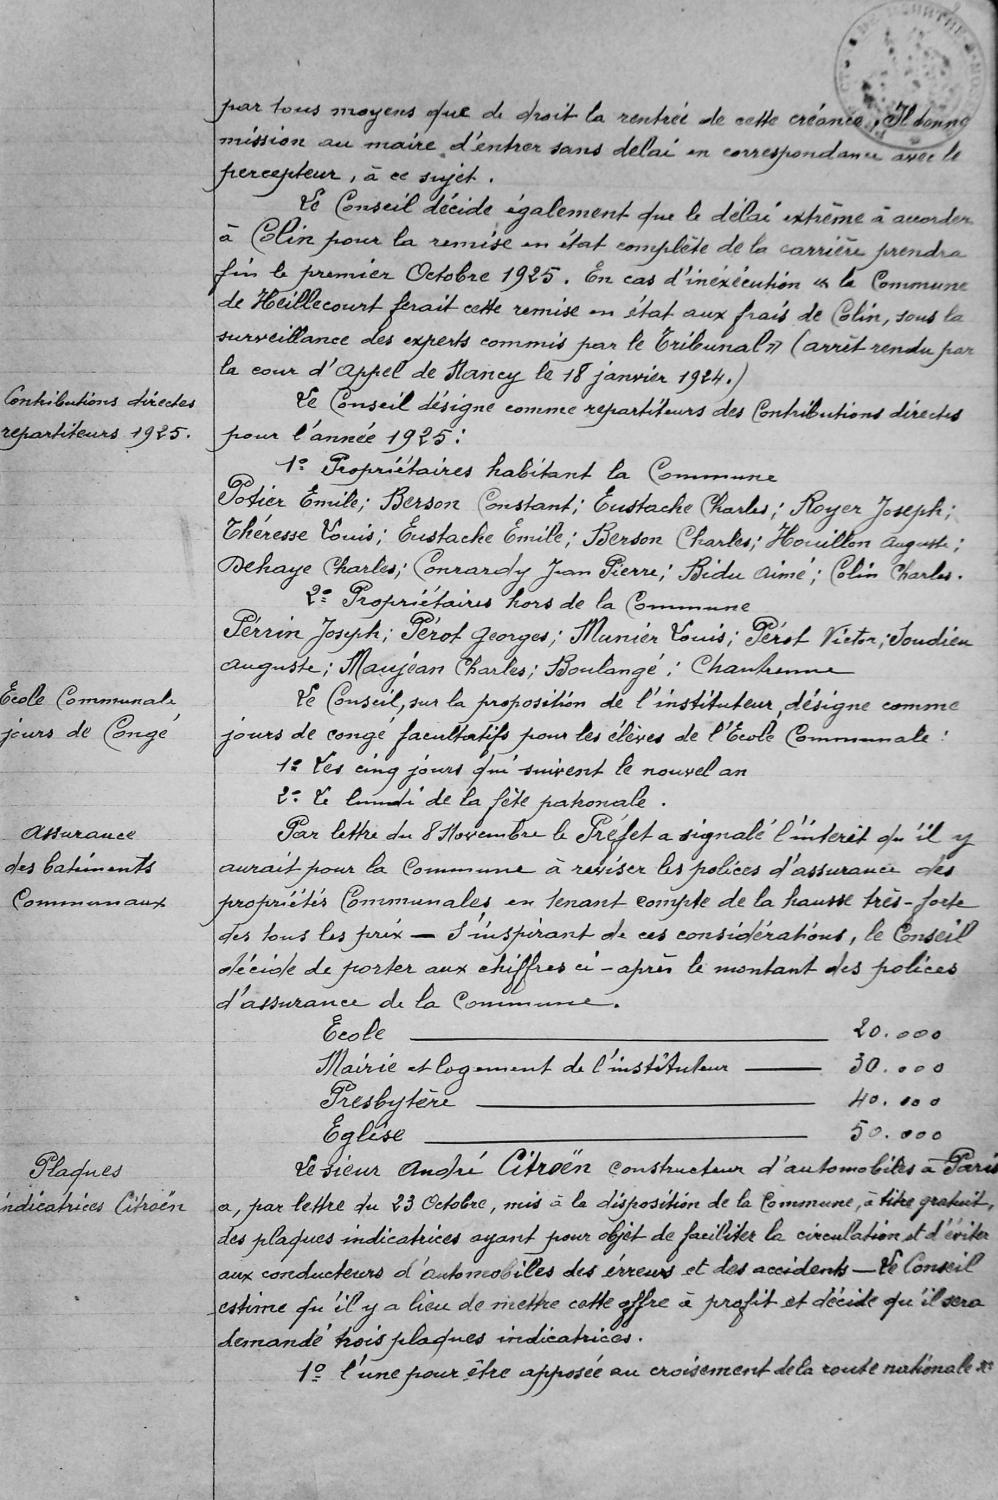 par tous moyens que de droit la rentrée de cette créance. Il donne
mission au maire d'entrer sans delai en correspondance avec le
percepteur, à ce sujet.
Le Conseil décide également que le délai extrême à accorder
à Colin pour la remise en état complète de la carrière prendra
fin le premier Octobre 1925. En cas d'inéxécution « la Commune
de Heillecourt ferait cette remise en état aux frais de Colin, sous la
surveillance des experts commis par le Tribunal » (arrêt rendu par
la cour d'Appel de Nancy le 18 janvier 1924.)
Contributions directes
repartiteurs 1925.
Le Conseil désigne comme repartiteurs des Contributions directes
pour l'année 1925:
1º Propriétaires habitant la Commune
Potier Emile; Berson Constant; Eustache Charles; Royer Joseph;
Théresse Louis; Eustache Emile; Berson Charles; Houillon Auguste;
Dehaye Charles; Conrardy Jean Pierre; Bidu Aimé; Colin Charles.
2º Propriétaires hors de la Commune
Perrin Joseph; Pérot Georges; Munier Louis; Pérot Victor; Soudieu
Auguste; Maujean Charles; Boulangé; Chantrenne
Ecole Communale
jours de Congé
Le Conseil, sur la proposition de l'instituteur, désigne comme
jours de congé facultatifs pour les élèves de l'Ecole Communale:
1º Les cinq jours qui suivent le nouvel an
2º Le lundi de la fête patronale.
Assurance
des batiments
Communaux
Par lettre du 8 Novembre le Préfet a signalé l'intérêt qu'il y
aurait pour la Commune à reviser les polices d'assurance des
propriétés Communales en tenant compte de la hausse très-forte
des tous les prix — S'inspirant de ces considérations, le Conseil
décide de porter aux chiffres ci-après le montant des polices
d'assurance de la Commune.
Ecole — 20.000
Mairie et logement de l'instituteur — 30.000
Presbytère — 40.000
Eglise — 50.000
Plaques
indicatrices Citroën
Le sieur André Citroën constructeur d'automobiles à Paris
a, par lettre du 23 Octobre, mis à la disposition de la Commune, à titre gratuit,
des plaques indicatrices ayant pour objet de faciliter la circulation et d'éviter
aux conducteurs d'automobiles des érreurs et des accidents — Le Conseil
estime qu'il y a lieu de mettre cette offre à profit et décide qu'il sera
demandé trois plaques indicatrices.
1º l'une pour être apposée au croisement de la route nationale